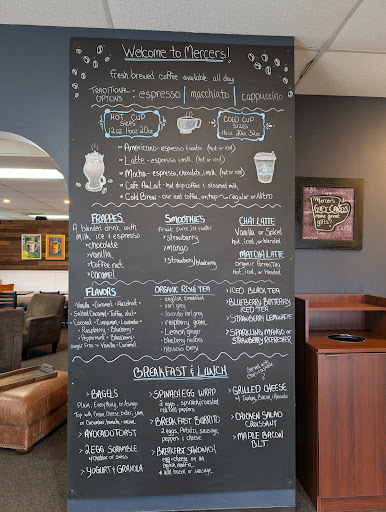 Welcome to Mercers!
fresh brewed coffee available all day
TRADITIONAL OPTIONS : espresso | macchiato | cappuccino
HOT CUP SIZES
12oz 16oz 20oz
COLD CUP SIZES
16oz 20oz 32oz
Americano - espresso & water (hot or iced)
Latte - espresso & milk (hot or iced)
Mocha - espresso, chocolate, milk (hot or iced)
Cafe Au Lait - hot drip coffee & steamed milk
Cold Brew - our iced coffee, on tap - regular or Nitro
FRAPPES
A blended drink with milk, ice & espresso
chocolate
vanilla
toffee nut
caramel
SMOOTHIES
fruit puree, ice
> strawberry
> mango
> strawberry/blueberry
CHAI LATTE
Vanilla or Spice!
hot, iced, or blended
MATCHA LATTE
organic Green Tea
hot, iced, or blended
FLAVORS
Vanilla - Caramel - Hazelnut -
Salted Caramel - Toffee Nut -
Coconut - Cinnamon - Lavender
- Raspberry - Blueberry -
Peppermint - Blueberry
Sugar free - Vanilla, Caramel
ORGANIC RISHI TEA
english breakfast
earl grey
lavender earl grey
raspberry green
Lemon ginger
blueberry rooibos
hibiscus berry
> ICED BLACK TEA
> BLUEBERRY BUTTERFLY ICED TEA
> STRAWBERRY LEMONADE
> SPARKLING MANGO or STRAWBERRY REFRESHER
BREAKFAST & LUNCH
> BAGELS
Plain, Everything, or Asiago
Top with Cream Cheese, butter, jam,
or Cucumber, tomato, onion
> AVOCADO TOAST
> 2 EGG SCRAMBLE
w/ cheddar or swiss
> YOGURT & GRANOLA
> SPINACH EGG WRAP
2 eggs, spinach, roasted red bell peppers
> BREAKFAST BURRITO
2 eggs, potato, sausage, peppers & cheese
> BREAKFAST SANDWICH
egg & cheese on an english muffin
add bacon or sausage
> GRILLED CHEESE
w/ Turkey, Bacon, Avocado
> CHICKEN SALAD CROISSANT
> MAPLE BACON BLT
Mercer's
GIFT CARDS
make great gifts!